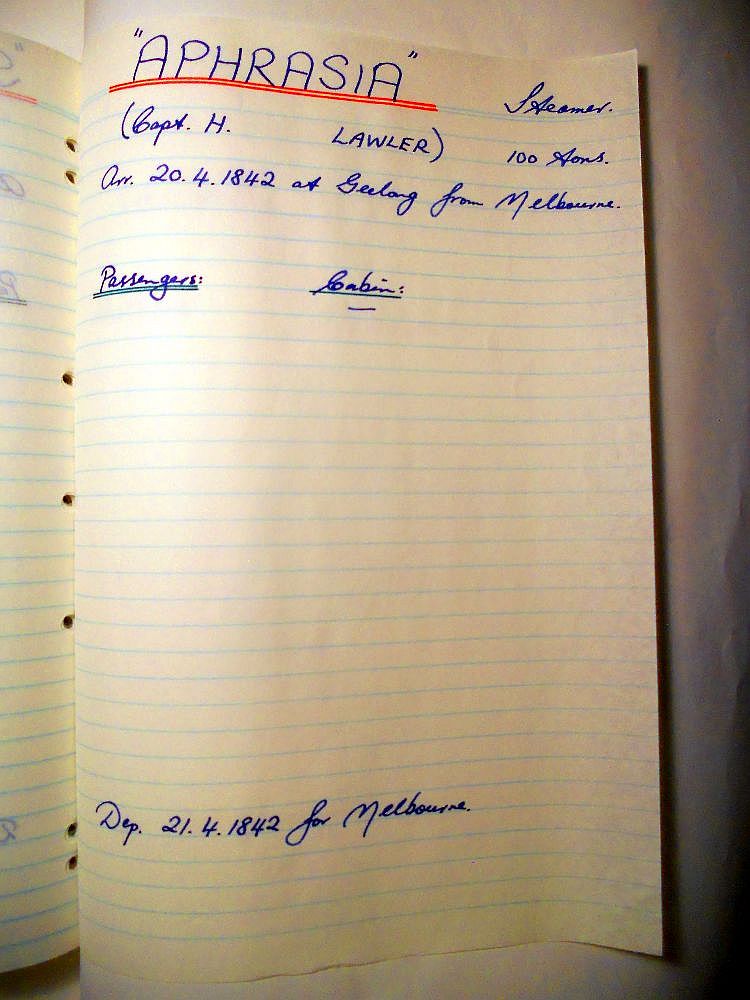 "APHRASIA" Steamer.
(Capt. H. LAWLER) 100 tons.
Arr. 20.4.1842 at Geelong from Melbourne.
Passengers: Cabin:
—
Dep. 21.4.1842 for Melbourne.